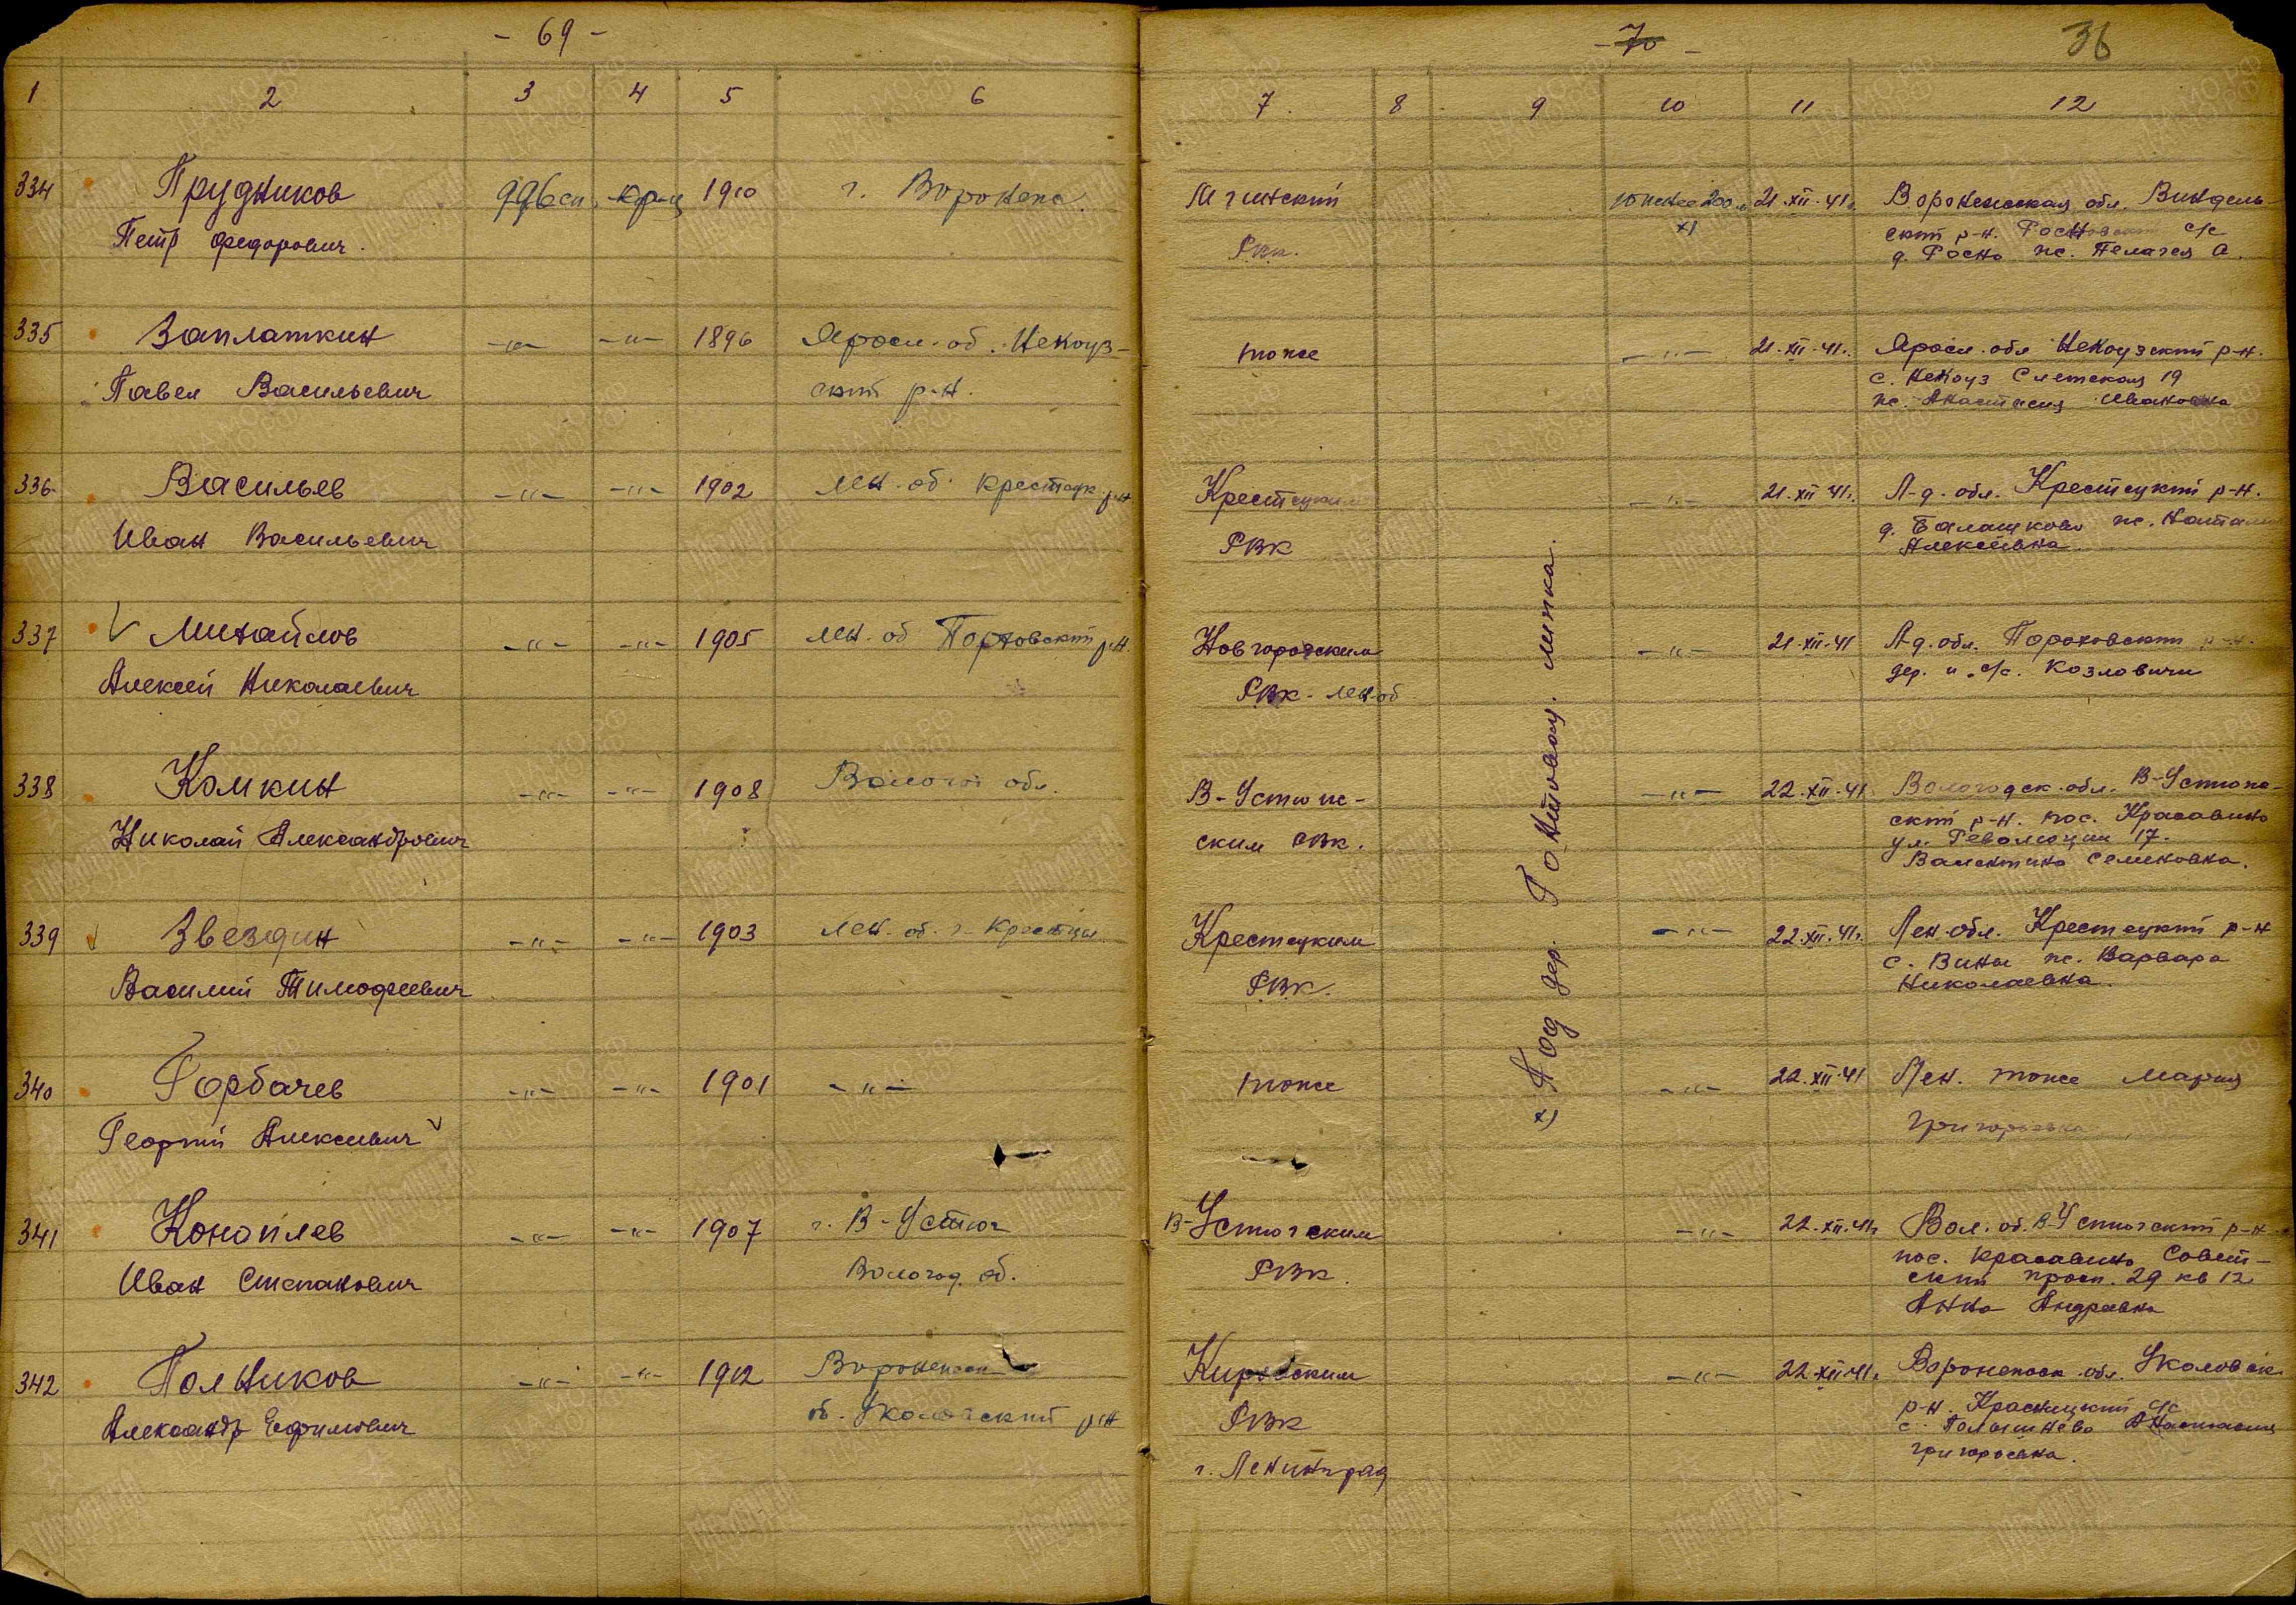 - 69 -
1 2 3 4 5 6
334 Прудников 996сп кр-ц 1910 г. Воронеж
Петр Федорович.
335 Заплаткин -"- -"- 1896 Яросл. об. Некоуз-
Павел Васильевич ский р-н.
336 Васильев -"- -"- 1902 Лен. об. Крестецк. р-н
Иван Васильевич
337 Михайлов -"- -"- 1905 Лен. об Порховский р-н.
Алексей Николаевич
338 Комкин -"- -"- 1908 Вологод обл.
Николай Александрович
339 Звездин -"- -"- 1903 Лен. об. г. Крестцы
Василий Тимофеевич
340 Горбачев -"- -"- 1901 -"-
Георгий Алексеевич
341 Коноплев -"- -"- 1907 г. В-Устюг
Иван Степанович Вологод. об.
342 Польников -"- -"- 1912 Воронежск
Александр Ефимович об. Уколовский р-н
- 70 - 36
7. 8 9 10 11 12
Мгинский южнее 200 м 21.XII.41г. Воронежская обл.
РВК. х) ский р-н. с/с
д. ж. Пелагея А.
тоже -"- 21.XII.41г. Яросл. обл Некоузский р-н.
с. Некоуз 19
ж. Анастасия Ивановна
Крестецким -"- 21.XII.41г. Л-д. обл. Крестецкий р-н.
РВК д. ж. Наталия
Алексеевна.
Новгородским -"- 21.XII.41 Л-д. обл. Порховский р-н.
РВК. Лен. об дер. и с/с. Козловичи
В-Устюж- -"- 22.XII.41 Вологодск. обл. В-Устюж-
ским РВК. ский р-н. пос. Красавино
ул. Революции 17.
Валентина Семеновна.
Крестецким -"- 22.XII.41г. Лен. обл. Крестецкий р-н
РВК. с. Вины ж. Варвара
Николаевна.
тоже -"- 22.XII.41 Лен. тоже Мария
Григорьевна
В-Устюгским -"- 22.XII.41г Вол. об. В-Устюгский р-н
РВК. пос. Красавино Совет-
ский просп. 29 кв 12
Анна Андреевна
Кировским -"- 22.XII.41г. Воронежск. обл. Уколовск
РВК р-н. с/с
г. Ленинград с. Анастасия
Григорьевна.
х) Под дер. липка.